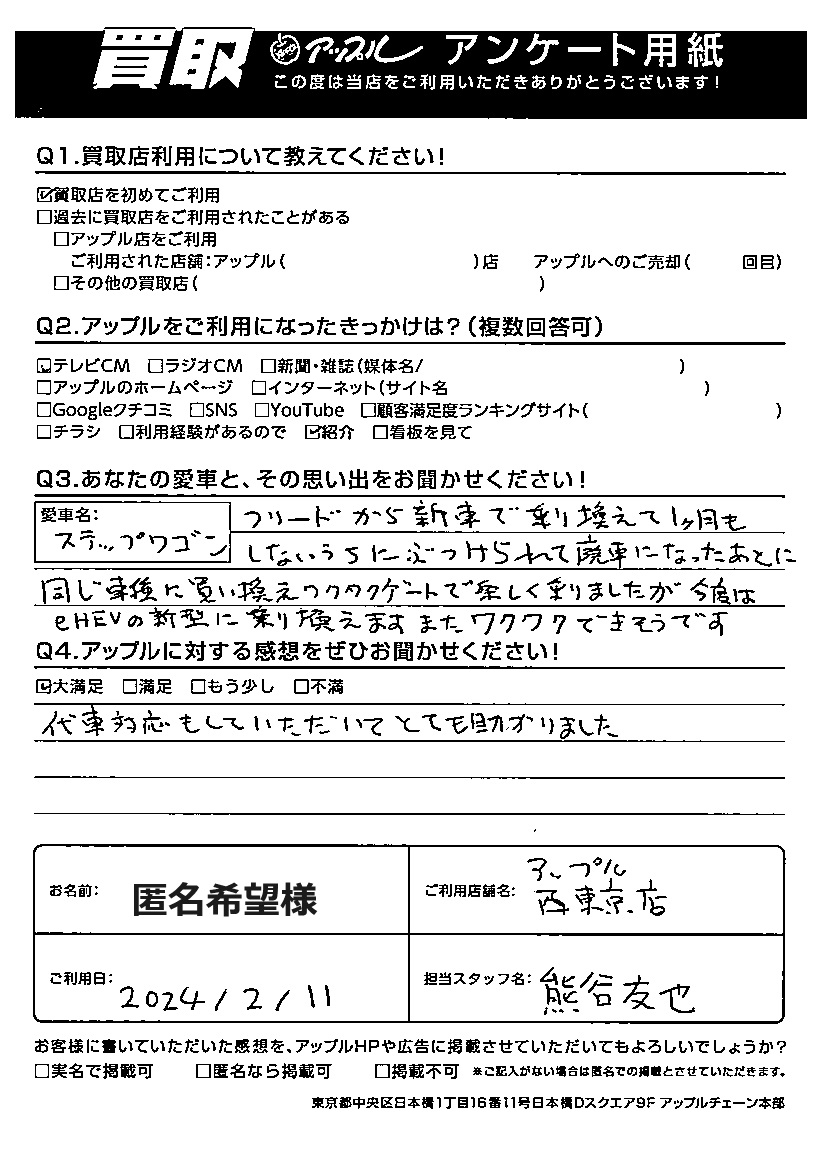 買取 アップル アンケート用紙
この度は当店をご利用いただきありがとうございます!
Q1.買取店利用について教えてください!
☑買取店を初めてご利用
□過去に買取店をご利用されたことがある
□アップル店をご利用
ご利用された店舗:アップル( )店 アップルへのご売却( 回目)
□その他の買取店( )
Q2.アップルをご利用になったきっかけは?(複数回答可)
☑テレビCM □ラジオCM □新聞・雑誌(媒体名/ )
□アップルのホームページ □インターネット(サイト名 )
□Googleクチコミ □SNS □YouTube □顧客満足度ランキングサイト( )
□チラシ □利用経験があるので ☑紹介 □看板を見て
Q3.あなたの愛車と、その思い出をお聞かせください!
愛車名:
ステップワゴン
フリードから新車で乗り換えて1ヶ月も
しないうちにぶつけられて廃車になったあとに
同じ車後に買い換えワクワクゲートで楽しく乗りましたが今度は
eHEVの新型に乗り換えますまたワクワクできそうです
Q4.アップルに対する感想をぜひお聞かせください!
☑大満足 □満足 □もう少し □不満
代車対応もしていただいてとても助かりました
お名前: 匿名希望様
ご利用店舗名: アップル
西東京店
ご利用日: 2024/2/11
担当スタッフ名: 熊谷友也
お客様に書いていただいた感想を、アップルHPや広告に掲載させていただいてもよろしいでしょうか?
□実名で掲載可 □匿名なら掲載可 □掲載不可 ※ご記入がない場合は匿名での掲載とさせていただきます。
東京都中央区日本橋1丁目16番11号日本橋Dスクエア9F アップルチェーン本部